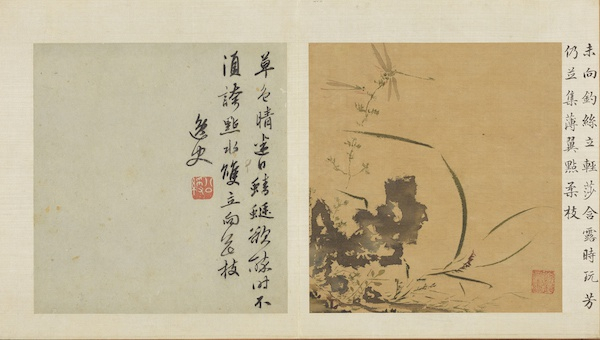 未向釣絲立輕莎含露時玩芳
仍竝集薄翼點柔枝
草色晴迷日蜻蜓欲時不
須誇點水雙立向花枝
逸史